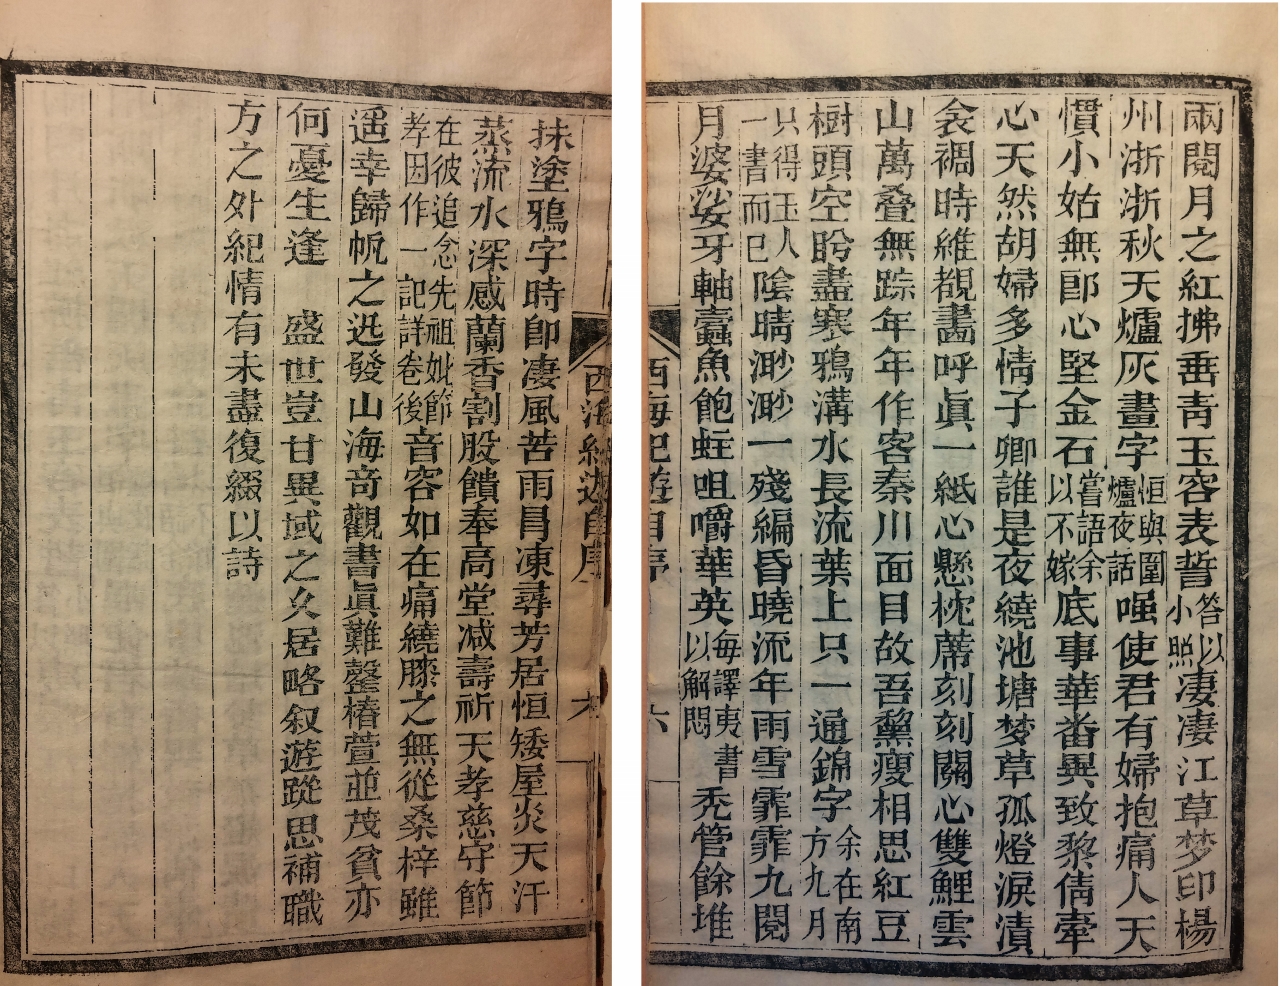 兩閱月之紅拂垂青玉容表誓答以小照凄凄江草梦印楊
州淅淅秋天爐灰畫字恒與圍爐夜話嗤使君有婦抱痛人天
慣小姑無郎心堅金石嘗語余以不嫁底事華畨異致黎倩牽
心天然胡婦多情子卿誰是夜繞池塘梦草孤燈淚漬
衾裯時維覩畵呼眞一紙心懸枕蓆刻刻關心雙鯉雲
山萬叠無踪年年作客秦川面目故吾黧瘦相思紅豆
樹頭空盻盡寒鴉溝水長流葉上只一通錦字余在南方九月
只得玉人一書而已陰晴渺渺一殘編昏曉流年雨雪霏霏九閱
月婆娑牙軸蠹魚飽蛀咀嚼華英每譯夷書以解悶禿管餘堆
西海紀遊自序
六
西海紀遊自序
六
抹塗鴉字時卽凄風苦雨冐凍尋芳居恒矮屋炎天汗
蒸流水深感蘭香割股饋奉高堂减壽祈天孝慈守節
在彼追念先祖妣節孝因作一記詳卷後音容如在痛繞膝之無從桑梓雖
遥幸歸帆之迅發山海竒觀書眞難罄椿萱並茂貧亦
何憂生逢　盛世豈甘異域之久居略叙遊踪思補職
方之外紀情有未盡復綴以詩